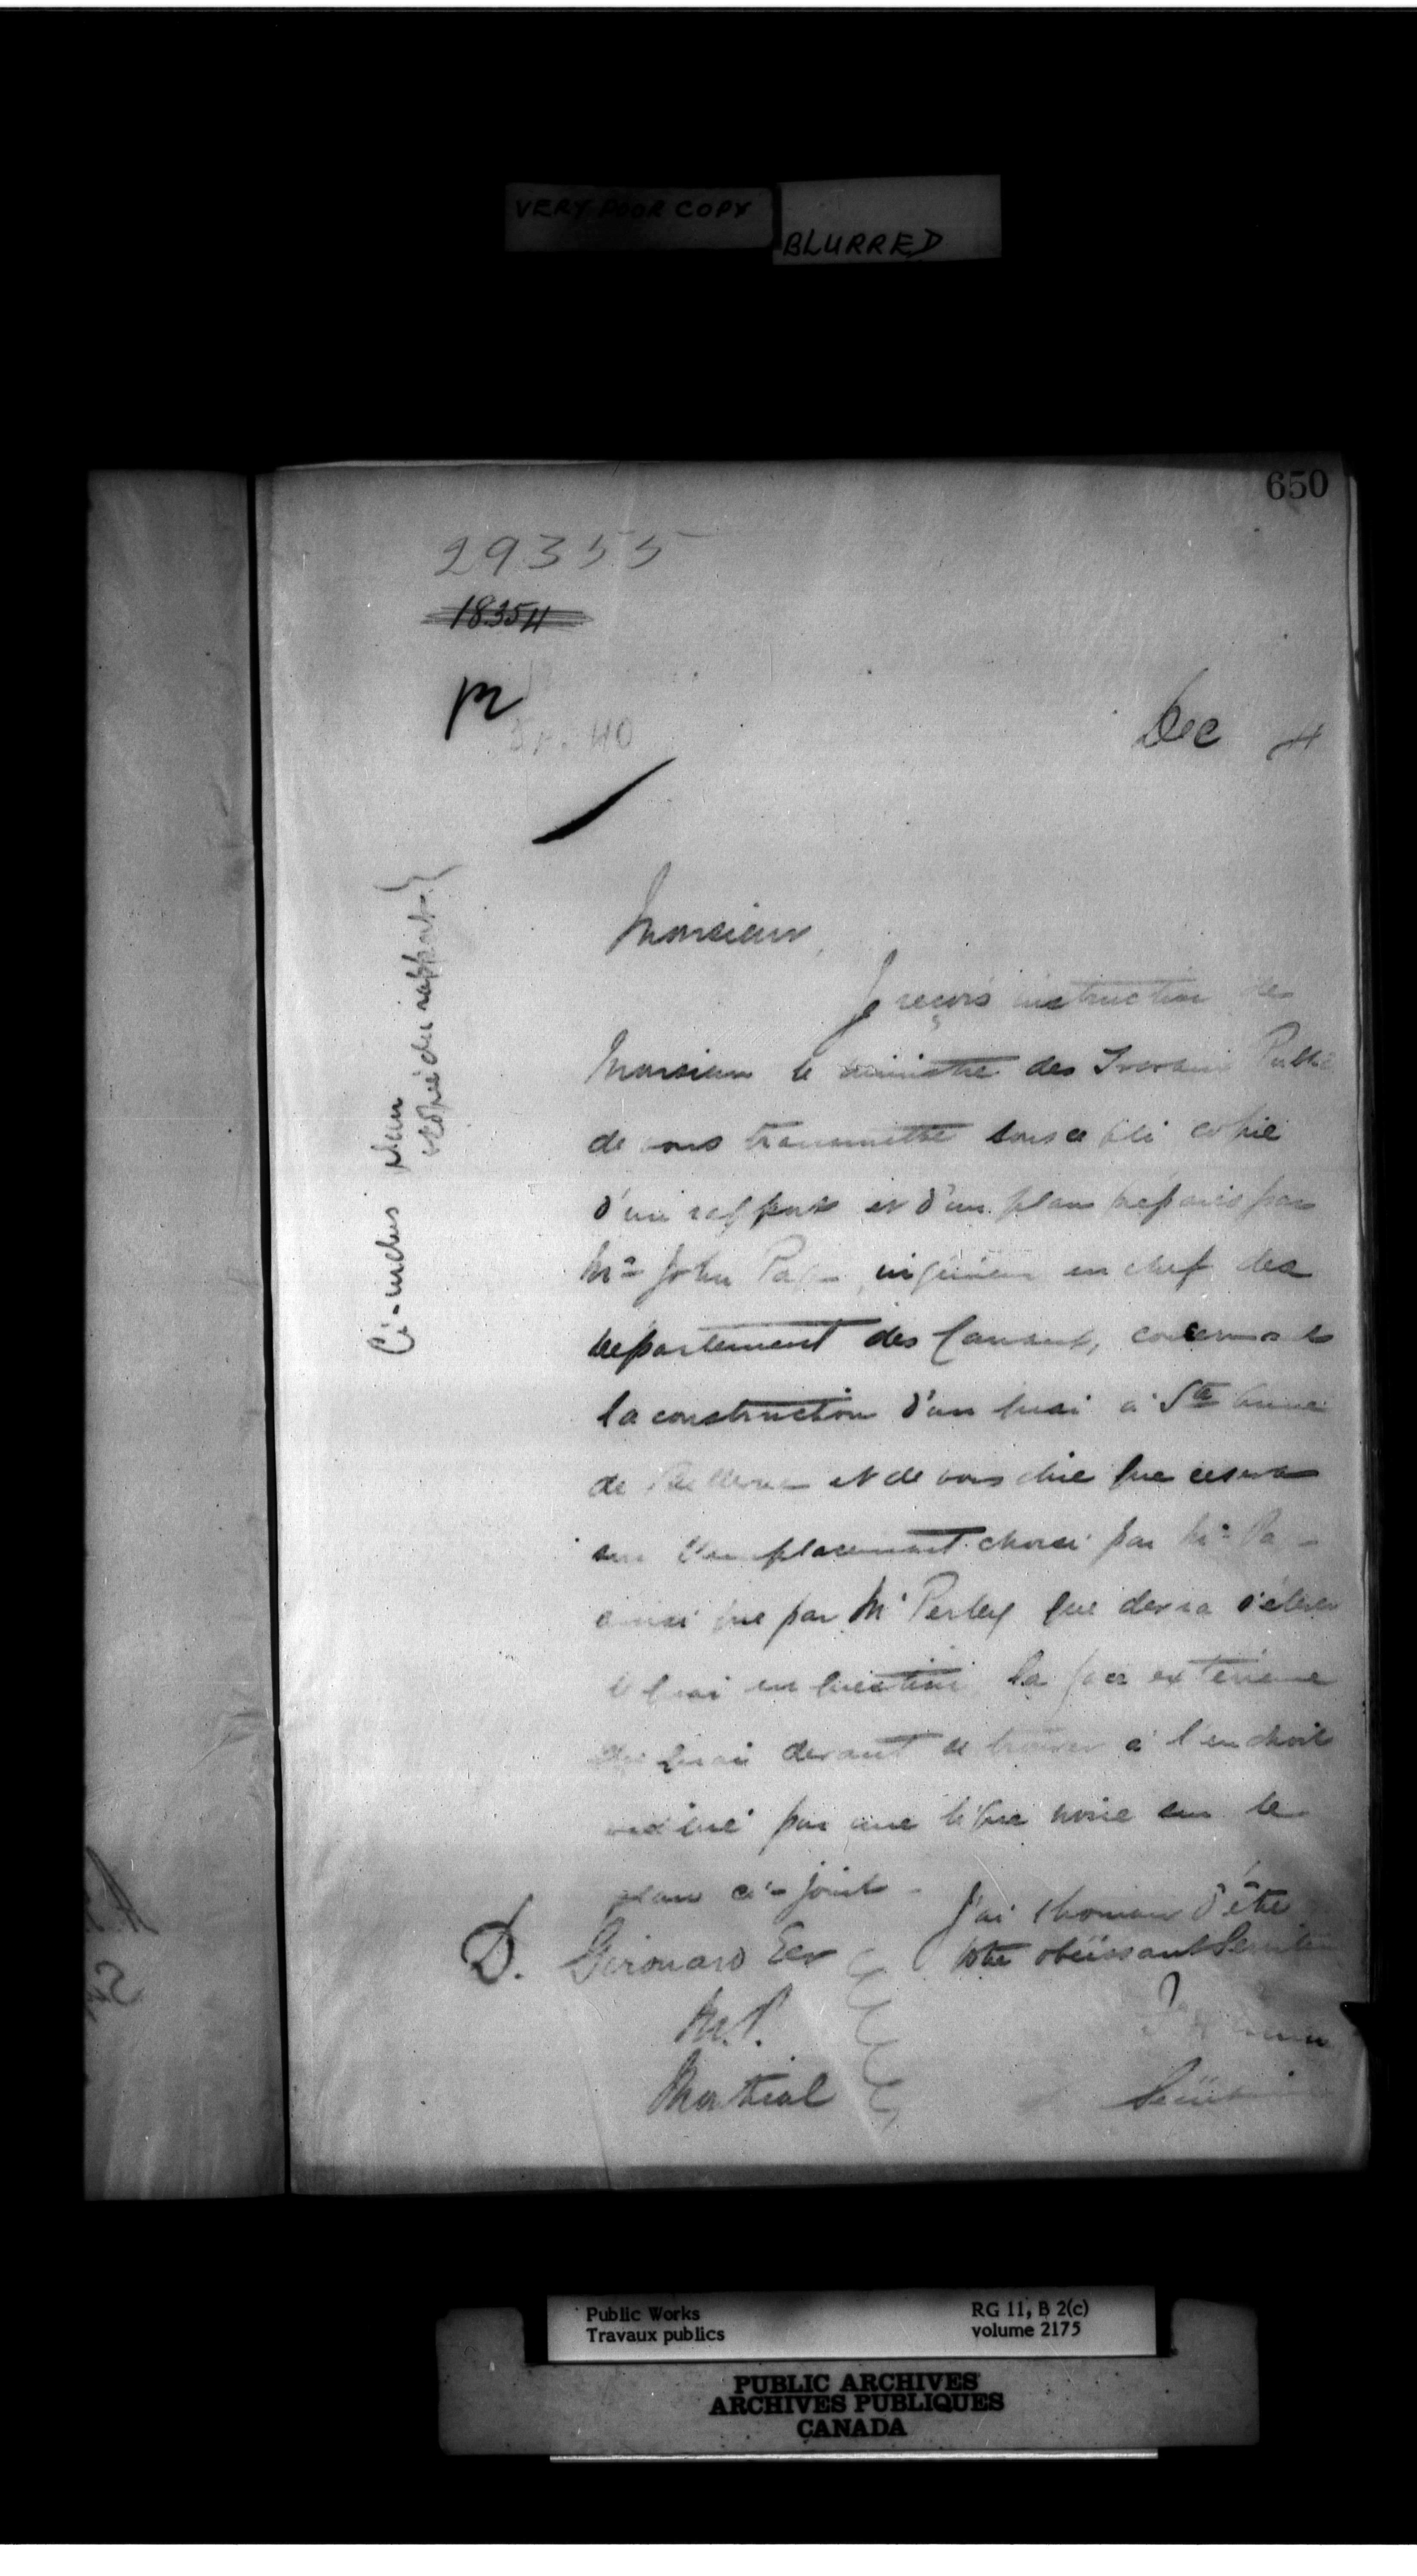 VERY POOR COPY
BLURRED
650
29355
18354
Dec 4
Ci-inclus plan
et copie du rapport
Monsieur,
Je reçois instruction de
Monsieur le ministre des Travaux Public
de vous transmettre sous ce pli copie
d'un rapport et d'un plan préparés par
Mr John Page, ingénieur en chef des
département des Canaux, concernant
la construction d'un quai à Ste Anne
de Bellevue et de vous dire que ce sera
sur l'emplacement choisi par Mr Pa
ainsi que par Mr Perley que devra s'élever
le quai en question, la face extérieure
du quai devant se trouver à l'endroit
indiqué par une ligne noire sur le
plan ci-joint.
J'ai l'honneur d'être
Votre obéissant Serviteur
D. Girouard Ecr
M.P.
Montréal
Public Works
Travaux publics
RG 11, B 2(c)
volume 2175
PUBLIC ARCHIVES
ARCHIVES PUBLIQUES
CANADA